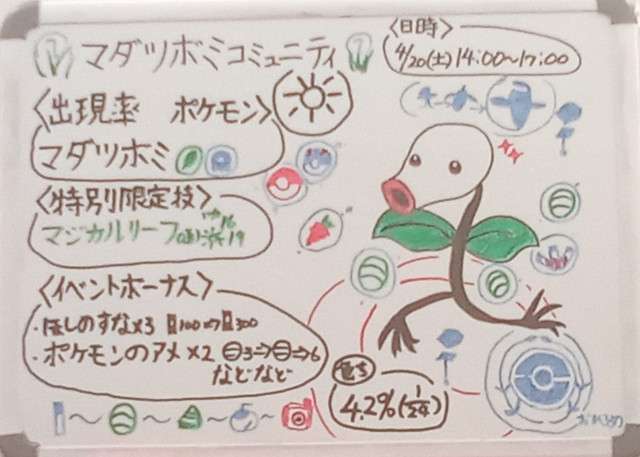 マダツボミコミュニティ
〈日時〉
4/20(土)14:00〜17:00
〈出現率 ポケモン〉
マダツボミ
〈特別限定技〉
マジカルリーフ
〈イベントボーナス〉
・ほしのすな×3 100⇒300
・ポケモンのアメ×2 3⇒6
などなど
4.2%(1/24)